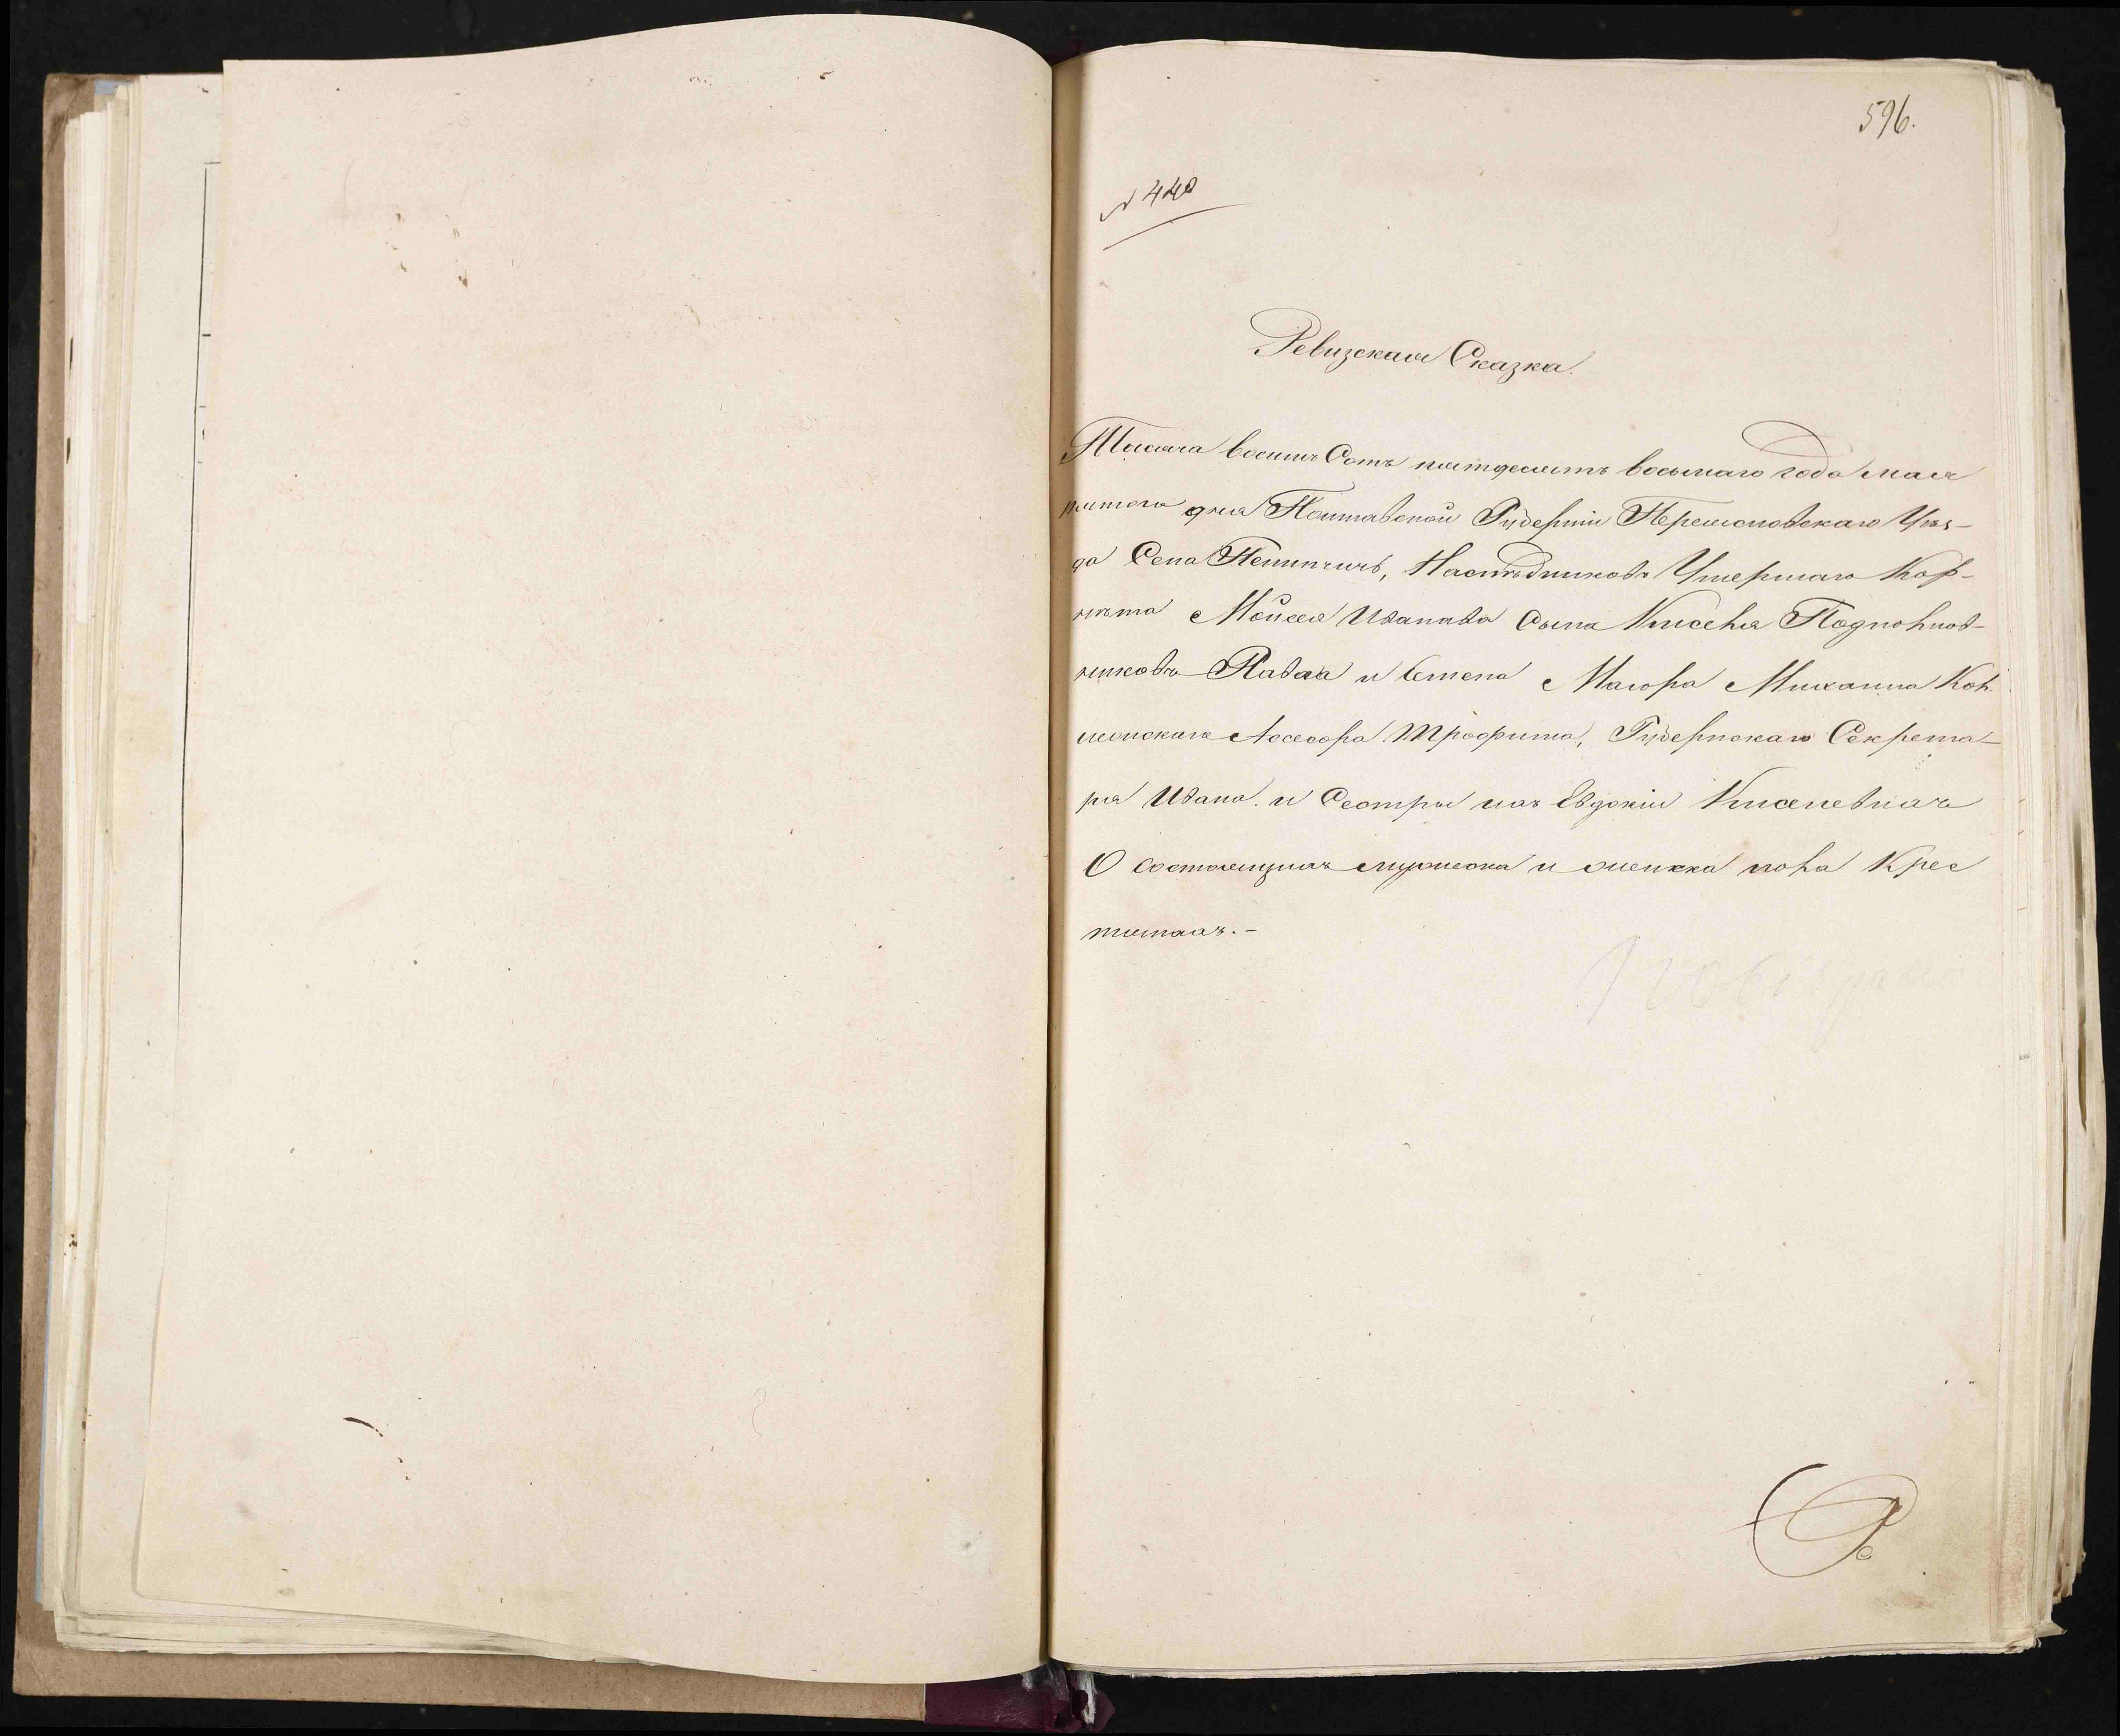 596.
№ 440
Ревизская Сказка.
Тысяча восемь Сотъ пятдесятъ восьмаго года мая
пятого дня Полтавской Губерніи Переяславскаго Уѣз-
да Села Пешичивъ, Наслѣдниковъ Умершаго Кор-
нета Мойсея Иванова Сына Киселя Подполков-
никовъ Павла и Семена Маіора Михаила Кол.
лежскаго Ассесора Трофима, Губернскаго Секрета-
ря Ивана. и Сестры ихъ Евдокіи Киселевнахъ
О состоящихъ мужеска и женска пола Крес
тянахъ.-